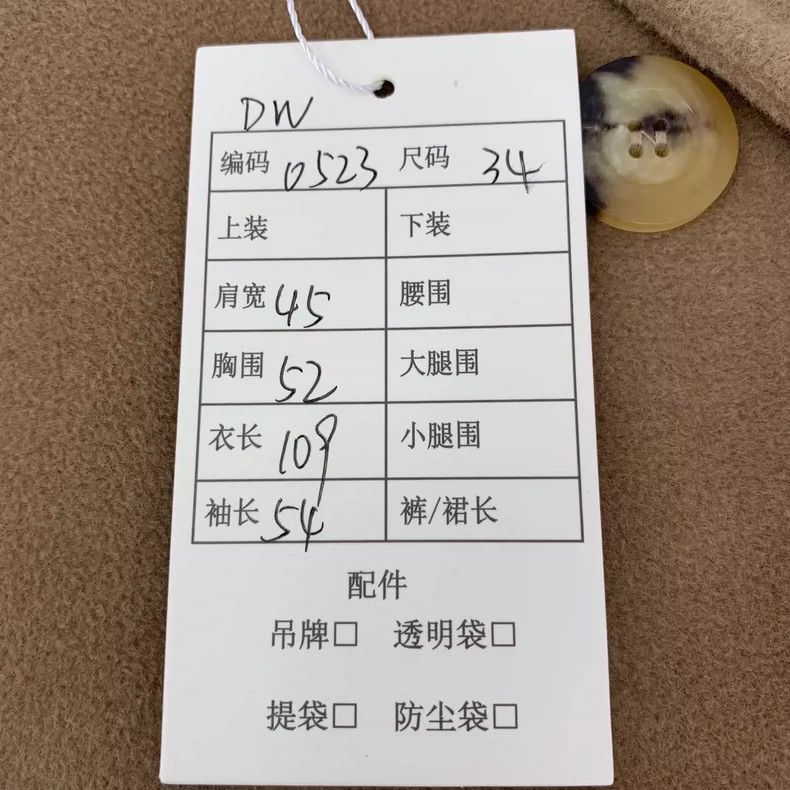 DW
编码 0523 尺码 34
上装 下装
肩宽 45 腰围
胸围 52 大腿围
衣长 109 小腿围
袖长 54 裤/裙长
配件
吊牌□ 透明袋□
提袋□ 防尘袋□